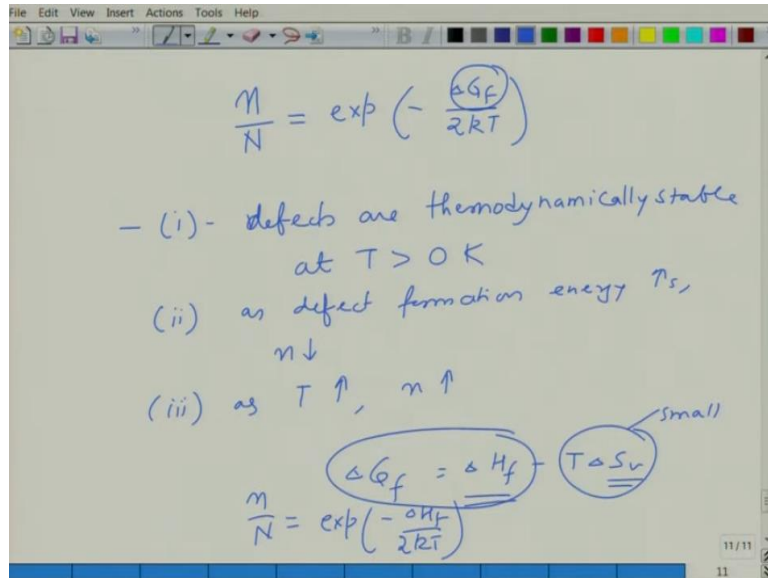 File Edit View Insert Actions Tools Help
n/N = exp (- ΔGf / 2kT)
- (i) - defects are thermodynamically stable
at T > 0 K
(ii) as defect formation energy ↑s,
n↓
(iii) as T ↑, n ↑
small
ΔGf = ΔHf - TΔSv
n/N = exp(- ΔHf / 2kT)
11/11
11